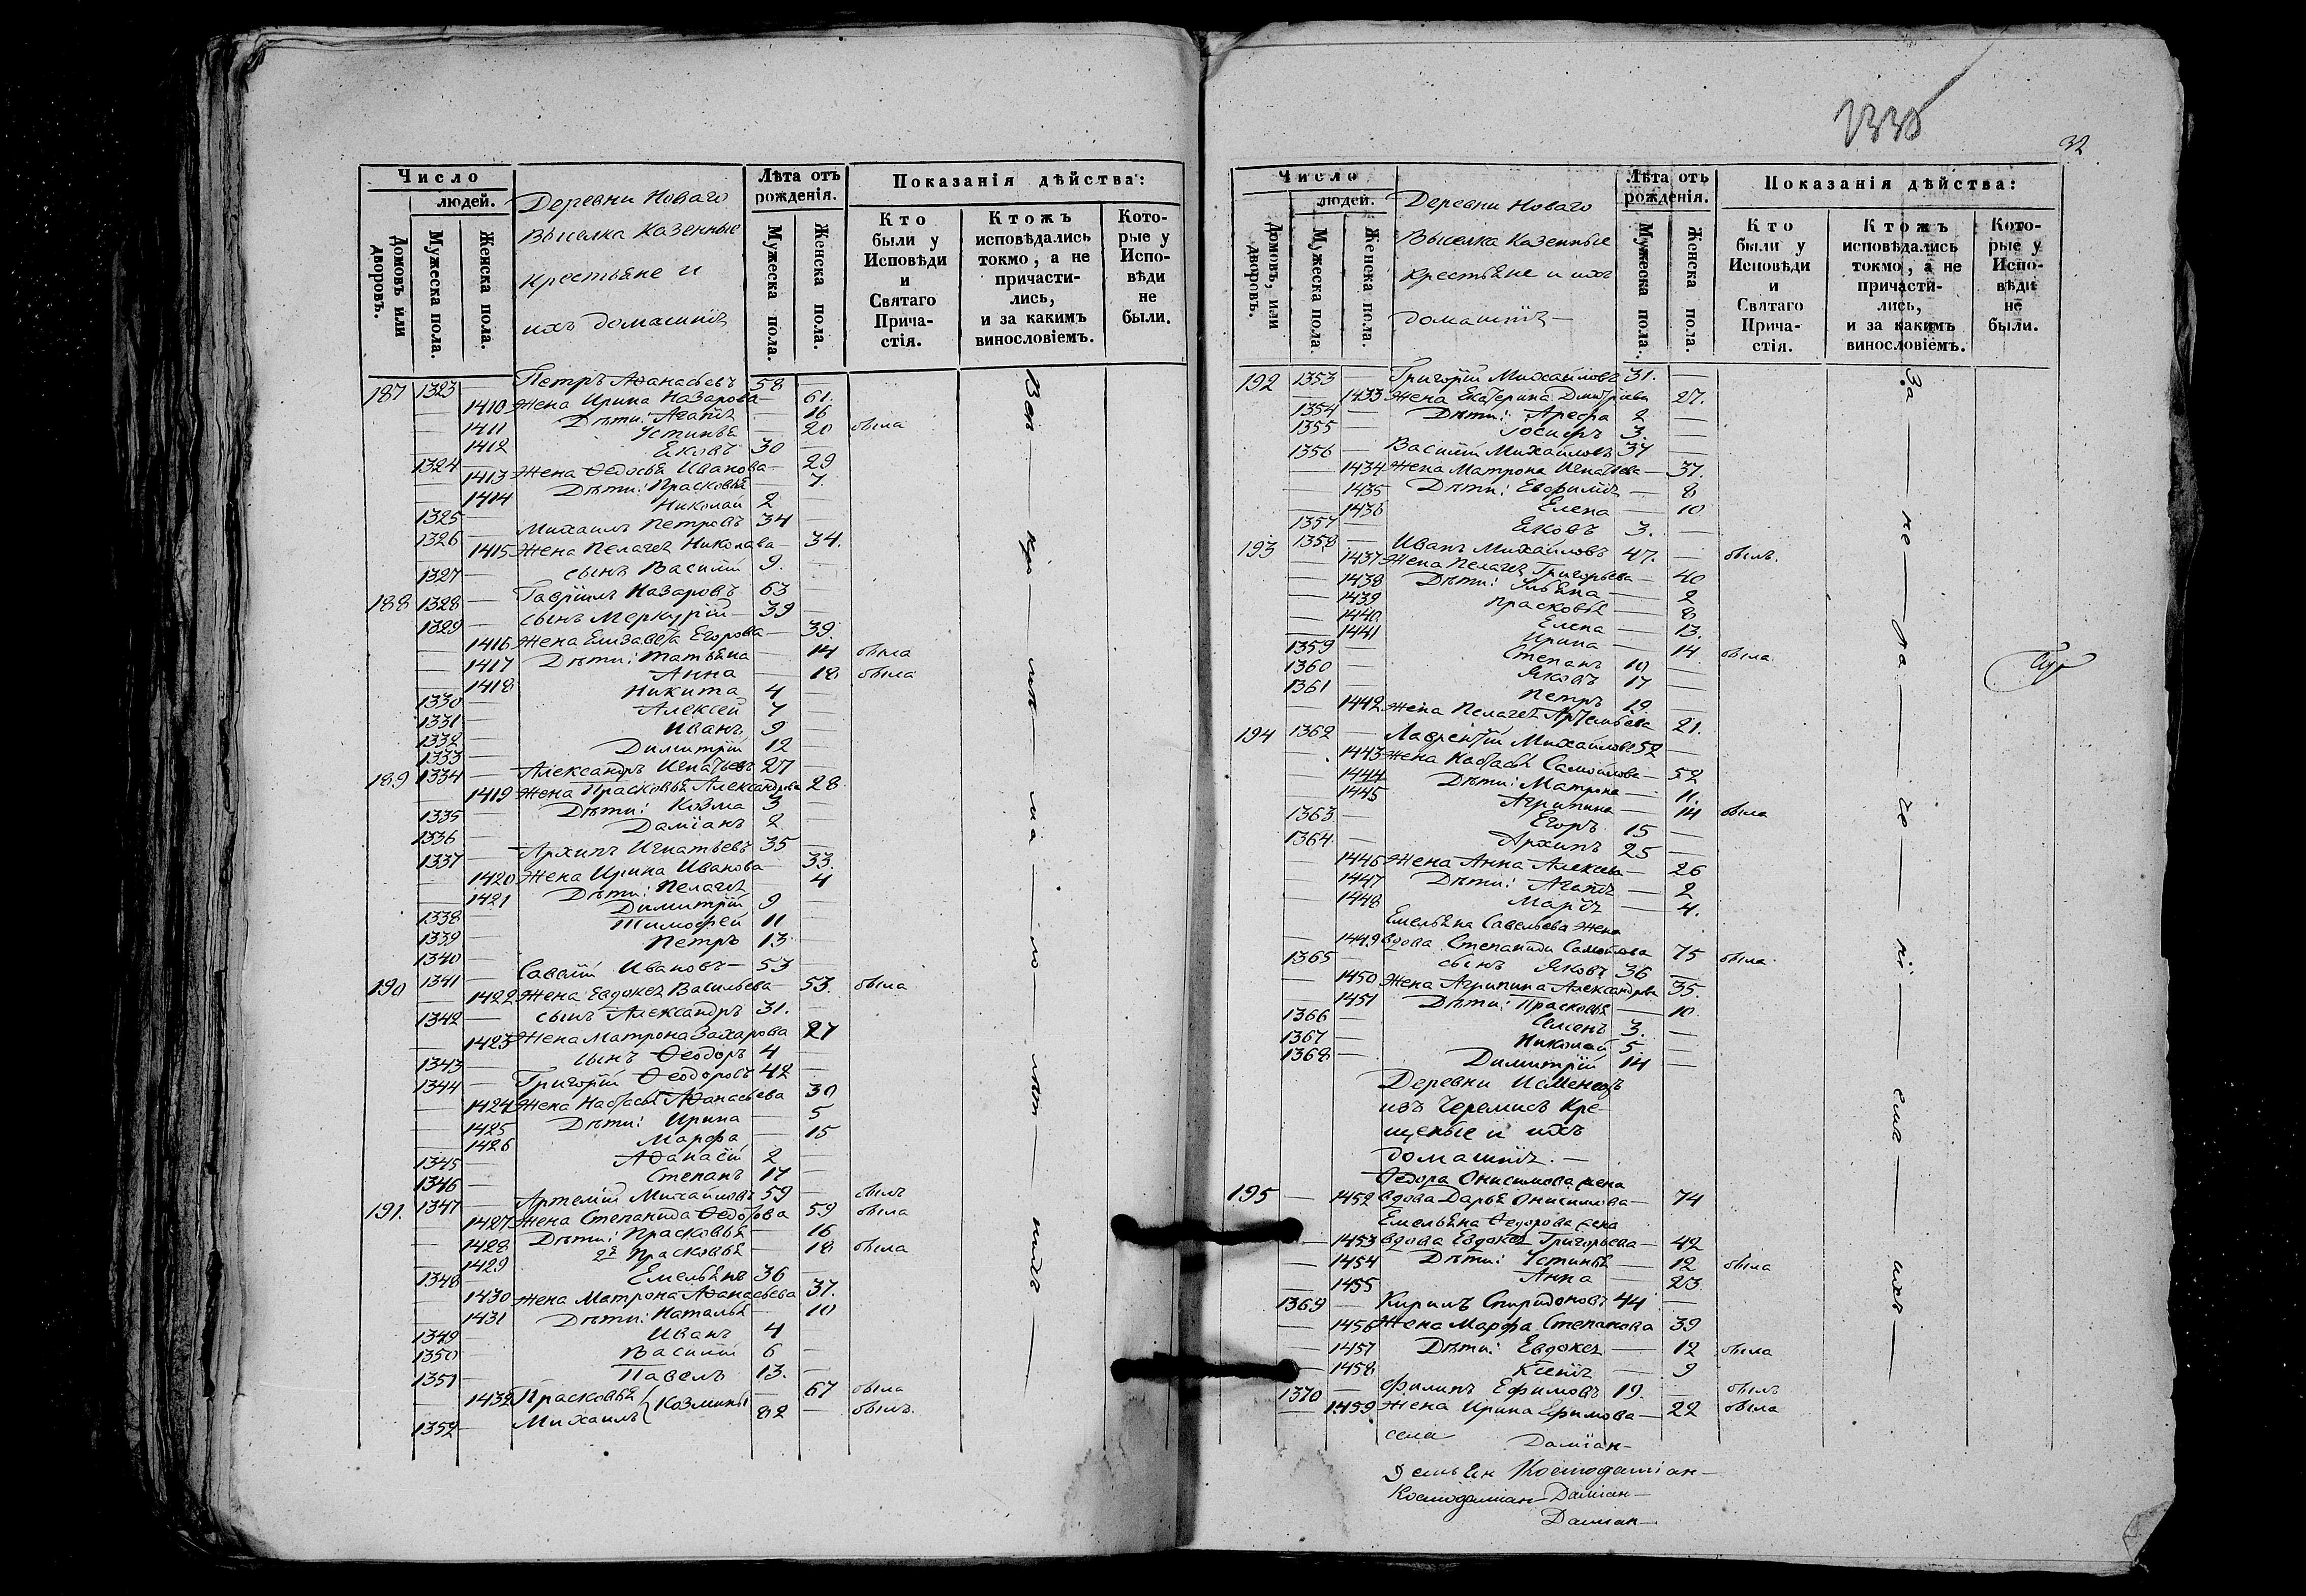 Число
людей.
Домовъ или дворовъ.
Мужеска пола.
Женска пола.
Деревни Новаго
Выселка Казенные
крестьяне и
ихъ домашніе
Лѣта отъ рожденія.
Мужеска пола.
Женска пола.
Показанія дѣйства:
Кто были у Исповѣди и Святаго Прича-стія.
Ктожъ исповѣдались токмо, а не причасти-лись, и за какимъ винословіемъ.
Кото-рые у Испо-вѣди не были.
187 1323 — Петръ Аѳанасьевъ 58 —
— 1410 Жена Ирина Назарова — 61.
— 1411 Дѣти: Агаѳія — 16
— 1412 Устинья — 20 была
1324 — Яковъ 30 —
— 1413 Жена Ѳедосья Иванова — 29
— 1414 Дѣти: Прасковья — 7.
1325 — Николай 2 —
1326 — Михаилъ Петровъ 34 —
— 1415 Жена Пелагея Николаева — 34.
1327 — сынъ Василій 9. —
188 1328 — Гавріилъ Назаровъ 63 —
1329 — сынъ Меркурій 39 —
— 1416 Жена Елизавета Егорова — 39.
— 1417 Дѣти: Татьяна — 14 была
— 1418 Анна — 18 была
1330 — Никита 4 —
1331 — Алексей 7 —
1332 — Иванъ 9 —
1333 — Димитрій 12 —
189 1334 — Александръ Игнатьевъ 27 —
— 1419 Жена Прасковья Александрова 28.
1335 — Дѣти: Козма 3 —
1336 — Даміанъ 2 —
1337 — Архипъ Игнатьевъ 35 —
— 1420 Жена Ирина Иванова — 33.
— 1421 Дѣти: Пелагея — 4
1338 — Димитрій 9 —
1339 — Тимофей 11 —
1340 — Петръ 13 —
190 1341 — Савват Ивановъ — 53 —
— 1422 Жена Евдокея Васильева — 53. была
1342 — сынъ Александръ 31. —
— 1423 Жена Матрона Захарова 27
1343 — сынъ Ѳеодоръ 4 —
1344 — Григорій Ѳеодоровъ 42 —
— 1424 Жена Настасья Аѳанасьева 30
— 1425 Дѣти: Ирина — 5
— 1426 Марфа — 15
1345 — Аѳанасій 2 —
1346 — Степанъ 17 —
191. 1347 — Артемій Михайловъ 59 — былъ
— 1427 Жена Степанида Ѳедотова 59 была
— 1428 Дѣти: Прасковья — 16
— 1429 2я Прасковья — 18 была
1348 — Емельянъ 36 —
— 1430 Жена Матрона Аѳанасьева 37.
— 1431 Дѣти: Наталья — 10
1349 — Иванъ 4 —
1350 — Василій 6 —
1351 — Павелъ 13. —
— 1432 Прасковья Козмины — 67 была
1352 — Михаилъ 82 — былъ.
32
Число
людей.
Домовъ, или дворовъ.
Мужеска пола.
Женска пола.
Деревни Новаго
Выселка Казенные
крестьяне и ихъ
домашніе —
Лѣта отъ рожденія.
Мужеска пола.
Женска пола.
Показанія дѣйства:
Кто были у Исповѣди и Святаго Прича-стія.
Ктожъ исповѣдались токмо, а не причасти-лись, и за какимъ винословіемъ.
Кото-рые у Испо-вѣди не были.
За — не — ра — че — ні — емъ — ихъ —
192 1353 — Григорій Михайловъ 31. —
— 1433 Жена Екатерина Дмитріева 27.
1354 — Дѣти: Арефа 2 —
1355 — Іосифъ 3. —
1356 — Василій Михайловъ 37 —
— 1434 Жена Матрона Игнатьева — 37.
— 1435 Дѣти: Евфимія — 8
— 1436 Елена — 10
1357 — Яковъ 3. —
193 1358 — Иванъ Михайловъ 47. — былъ.
— 1437 Жена Пелагея Григорьева — 40
— 1438 Дѣти: Ульяна — 2
— 1439 Прасковья — 8
— 1440 Елена — 13.
— 1441 Ирина — 14 была
1359 — Степанъ 10 —
1360 — Яковъ 17 —
1361 — Петръ 19 —
— 1442 Жена Пелагея Артемьева 21.
194 1362 — Лаврентій Михайловъ 52 —
— 1443 Жена Настасья Самойлова — 52
— 1444 Дѣти: Матрона — 11.
— 1445 Агрипина — 14 была
1363 — Егоръ 15 —
1364 — Архипъ 25 —
— 1446 Жена Анна Алексева — 26
— 1447 Дѣти: Агаѳія — 2
— 1448 Марія — 4.
Емельяна Савельева жена
— 1449 вдова Степанида Самойлова 75 была
1365 — сынъ Яковъ 36 —
— 1450 Жена Агрипина Александрова 35.
— 1451 Дѣти: Прасковья — 10
1366 — Семенъ 3. —
1367 — Николай 5 —
1368 — Димитрій 14 —
Деревни Исменецъ
изъ Черемисъ Кре-
щеные и ихъ
домашніе. —
Ѳедора Онисимова жена
195 — 1452 вдова Дарья Онисимова — 74
Емельяна Ѳедорова жена
— 1453 вдова Евдокея Григорьева — 42
— 1454 Дѣти: Устинья — 12 была
— 1455 Анна — 23.
1369 — Кирилъ Спиридоновъ 44 —
— 1456 Жена Марфа Степанова 39
— 1457 Дѣти: Евдокея — 12 была
— 1458 Ксенія — 9
1370 — Филипъ Ефимовъ 19. — былъ
— 1459 Жена Ирина Ефимова — 22 была
села Даміан-
Демьян Космодаміан-
Космодаміан- Даміан-
Даміан-